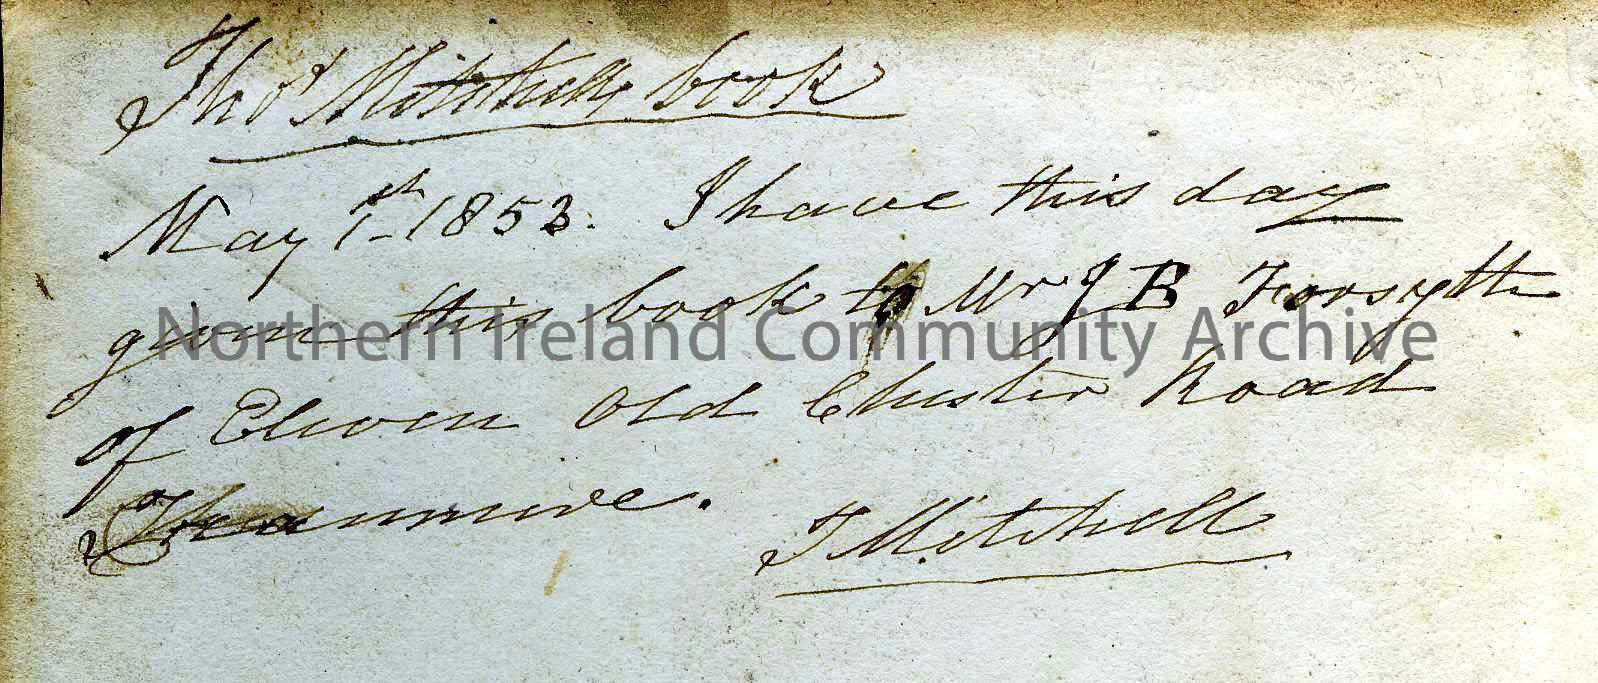 Thos Mitchells book
May 1th 1853. I have this day
given this book to Mr J B Forsyth
Northern Ireland Community Archive
of Old Chester Road
Tranmere.
T Mitchell